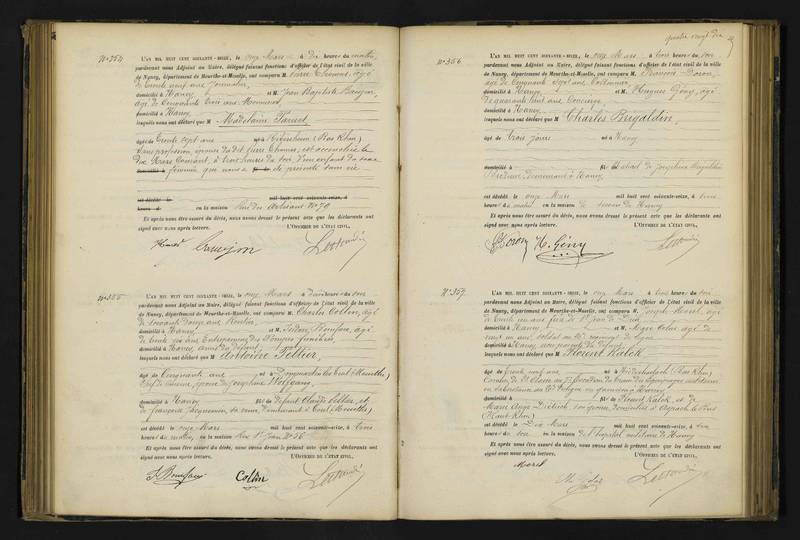 quatre vingt dix
N° 354
L'AN MIL HUIT CENT SOIXANTE-SEIZE, le onze Mars à dix heures du matin,
pardevant nous Adjoint au Maire, délégué faisant fonctions d'officier de l'état civil de la ville
de Nancy, département de Meurthe-et-Moselle, ont comparu M. Pierre
de trente neuf ans Journalier,
domicilié à Nancy et M. Jean Baptiste
âgé de Cinquante trois ans
domicilié à Nancy
lesquels nous ont déclaré que M Madelaine
âgée de trente sept ans née à (Bas Rhin)
Sans profession, épouse du dit Pierre est accouchée le
Dix Mars Courant, à trois heures du soir, d'un enfant du sexe
domicilié à féminin, que nous a présenté sans vie
est décédé le mil huit cent soixante-seize, à
heure du en la maison Rue des Artisans N° 70
Et après nous être assuré du décès, nous avons dressé le présent acte que les déclarants ont
signé avec nous après lecture. L'OFFICIER DE L'ÉTAT CIVIL,
N° 355
L'AN MIL HUIT CENT SOIXANTE-SEIZE, le onze Mars à deux heures du soir
pardevant nous Adjoint au Maire, délégué faisant fonctions d'officier de l'état civil de la ville
de Nancy, département de Meurthe-et-Moselle, ont comparu M. Charles Collin, âgé
de soixante douze ans Rentier
domicilié à Nancy et M. Boniface, âgé
de trente six ans Entrepreneur des Pompes funèbres
domicilié à Nancy, amis du défunt
lesquels nous ont déclaré que M Antoine Tellier,
âgé de Cinquante ans né à Dommartin les Toul (Meurthe)
époux de Joséphine Wolfgang,
domicilié à Nancy fils de défunt Claude Tellier, et
de Françoise sa veuve, demeurant à Toul (Meurthe)
est décédé le onze Mars mil huit cent soixante-seize, à trois
heures du matin, en la maison Rue St Jean N° 56
Et après nous être assuré du décès, nous avons dressé le présent acte que les déclarants ont
signé avec nous après lecture. L'OFFICIER DE L'ÉTAT CIVIL,
Boniface Collin
N° 356
L'AN MIL HUIT CENT SOIXANTE-SEIZE, le onze Mars à trois heures du soir
pardevant nous Adjoint au Maire, délégué faisant fonctions d'officier de l'état civil de la ville
de Nancy, département de Meurthe-et-Moselle, ont comparu M. François
âgé de Cinquante sept ans
domicilié à Nancy et M. Hugues Gény, âgé
de quarante huit ans Concierge
domicilié à Nancy
lesquels nous ont déclaré que M Charles Brigaldin,
âgé de trois jours né à Nancy
domicilié à fils naturel de Joséphine Brigaldin
demeurant à Nancy
est décédé le onze Mars mil huit cent soixante-seize, à trois
heures du matin en la maison de secours de Nancy
Et après nous être assuré du décès, nous avons dressé le présent acte que les déclarants ont
signé avec nous après lecture. L'OFFICIER DE L'ÉTAT CIVIL,
H. Gény
N° 357
L'AN MIL HUIT CENT SOIXANTE-SEIZE, le onze Mars à trois heures du soir
pardevant nous Adjoint au Maire, délégué faisant fonctions d'officier de l'état civil de la ville
de Nancy, département de Meurthe-et-Moselle, ont comparu M. Joseph Morel, âgé
de trente un ans frère de St Jean de Dieu
domicilié à Nancy et M. âgé de
vingt un ans Soldat au régiment de ligne
domicilié à Nancy, non parents du défunt
lesquels nous ont déclaré que M Florent Kalck,
âgé de trente neuf ans né à Niederhaslach (Bas Rhin)
domicilié à fils de Florent Kalck, et de
Marie Anne Dietrich son épouse, domiciliés à Aspach le Bas
(Haut Rhin)
est décédé le Dix Mars mil huit cent soixante-seize, à
heures du soir en la maison de l'hôpital militaire de Nancy
Et après nous être assuré du décès, nous avons dressé le présent acte que les déclarants ont
signé avec nous après lecture. L'OFFICIER DE L'ÉTAT CIVIL,
Morel